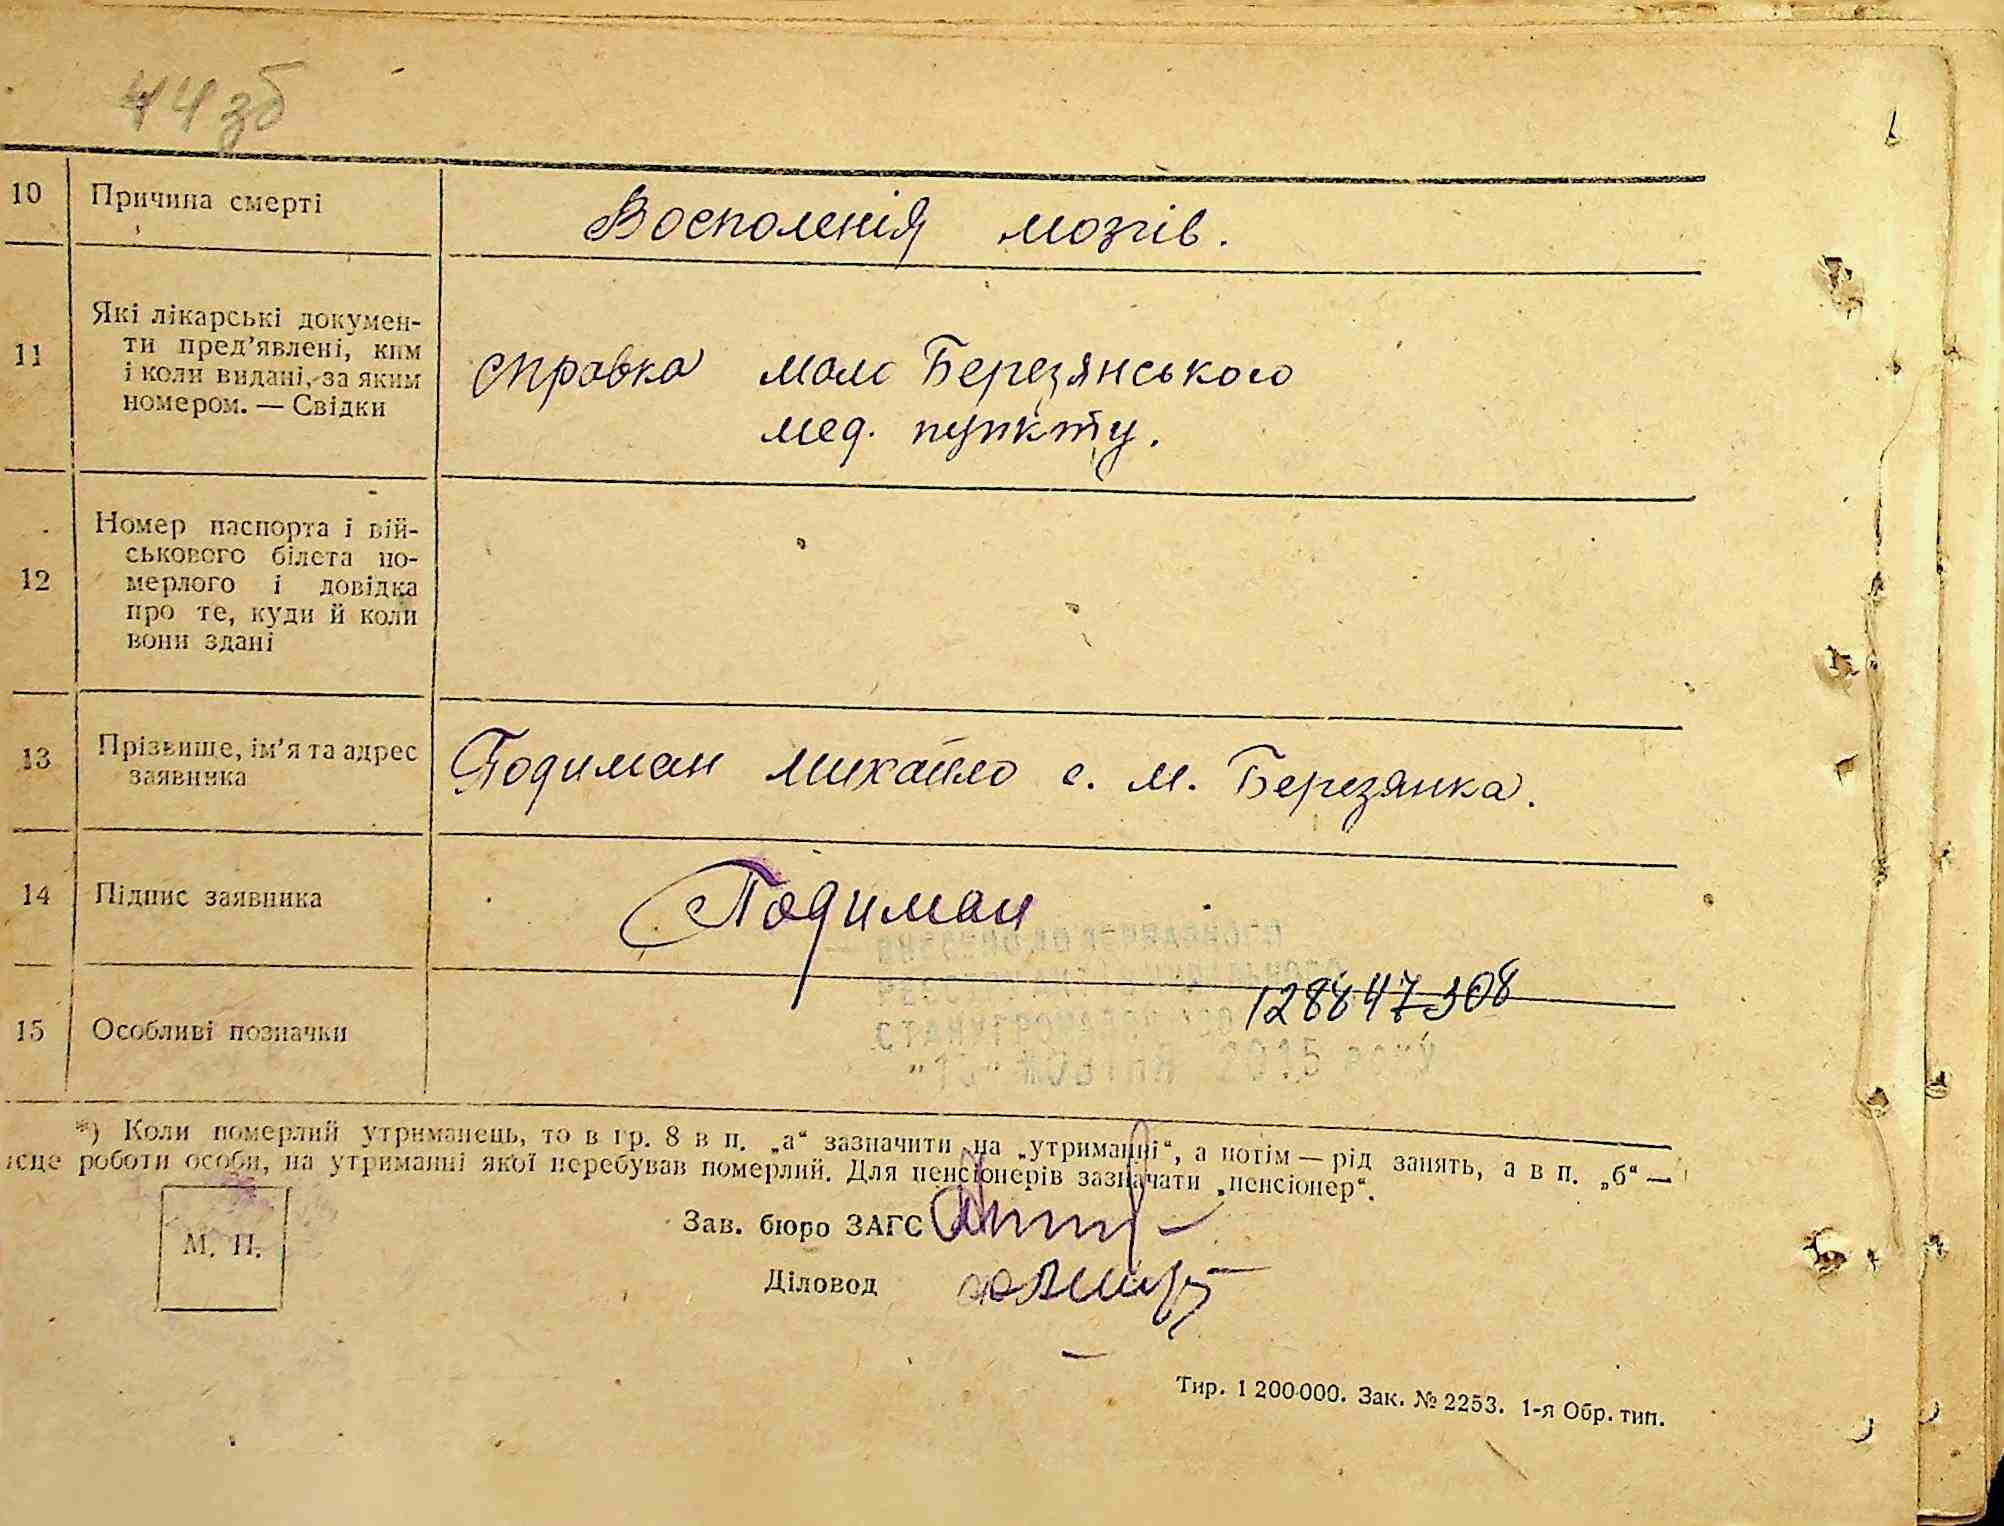 44 зб
10 Причина смерті Восполенія мозгів.
11 Які лікарські докумен-
ти пред'явлені, ким
і коли видані, за яким
номером. — Свідки
справка мало Березянського
мед. пункту.
12 Номер паспорта і вій-
ськового білета по-
мерлого і довідка
про те, куди й коли
вони здані
13 Прізвище, ім'я та адрес
заявника
Подиман михайло с. м. Березянка.
14 Підпис заявника Подиман
128847308
15 Особливі позначки
2015 року
*) Коли померлий утриманець, то в гр. 8 в п. „а“ зазначити на „утриманні“, а потім — рід занять, а в п. „б“ —
ісце роботи особи, на утриманні якої перебував померлий. Для пенсіонерів зазначати „пенсіонер“.
М. П.
Зав. бюро ЗАГС
Діловод
Тир. 1 200 000. Зак. № 2253. 1-я Обр. тип.